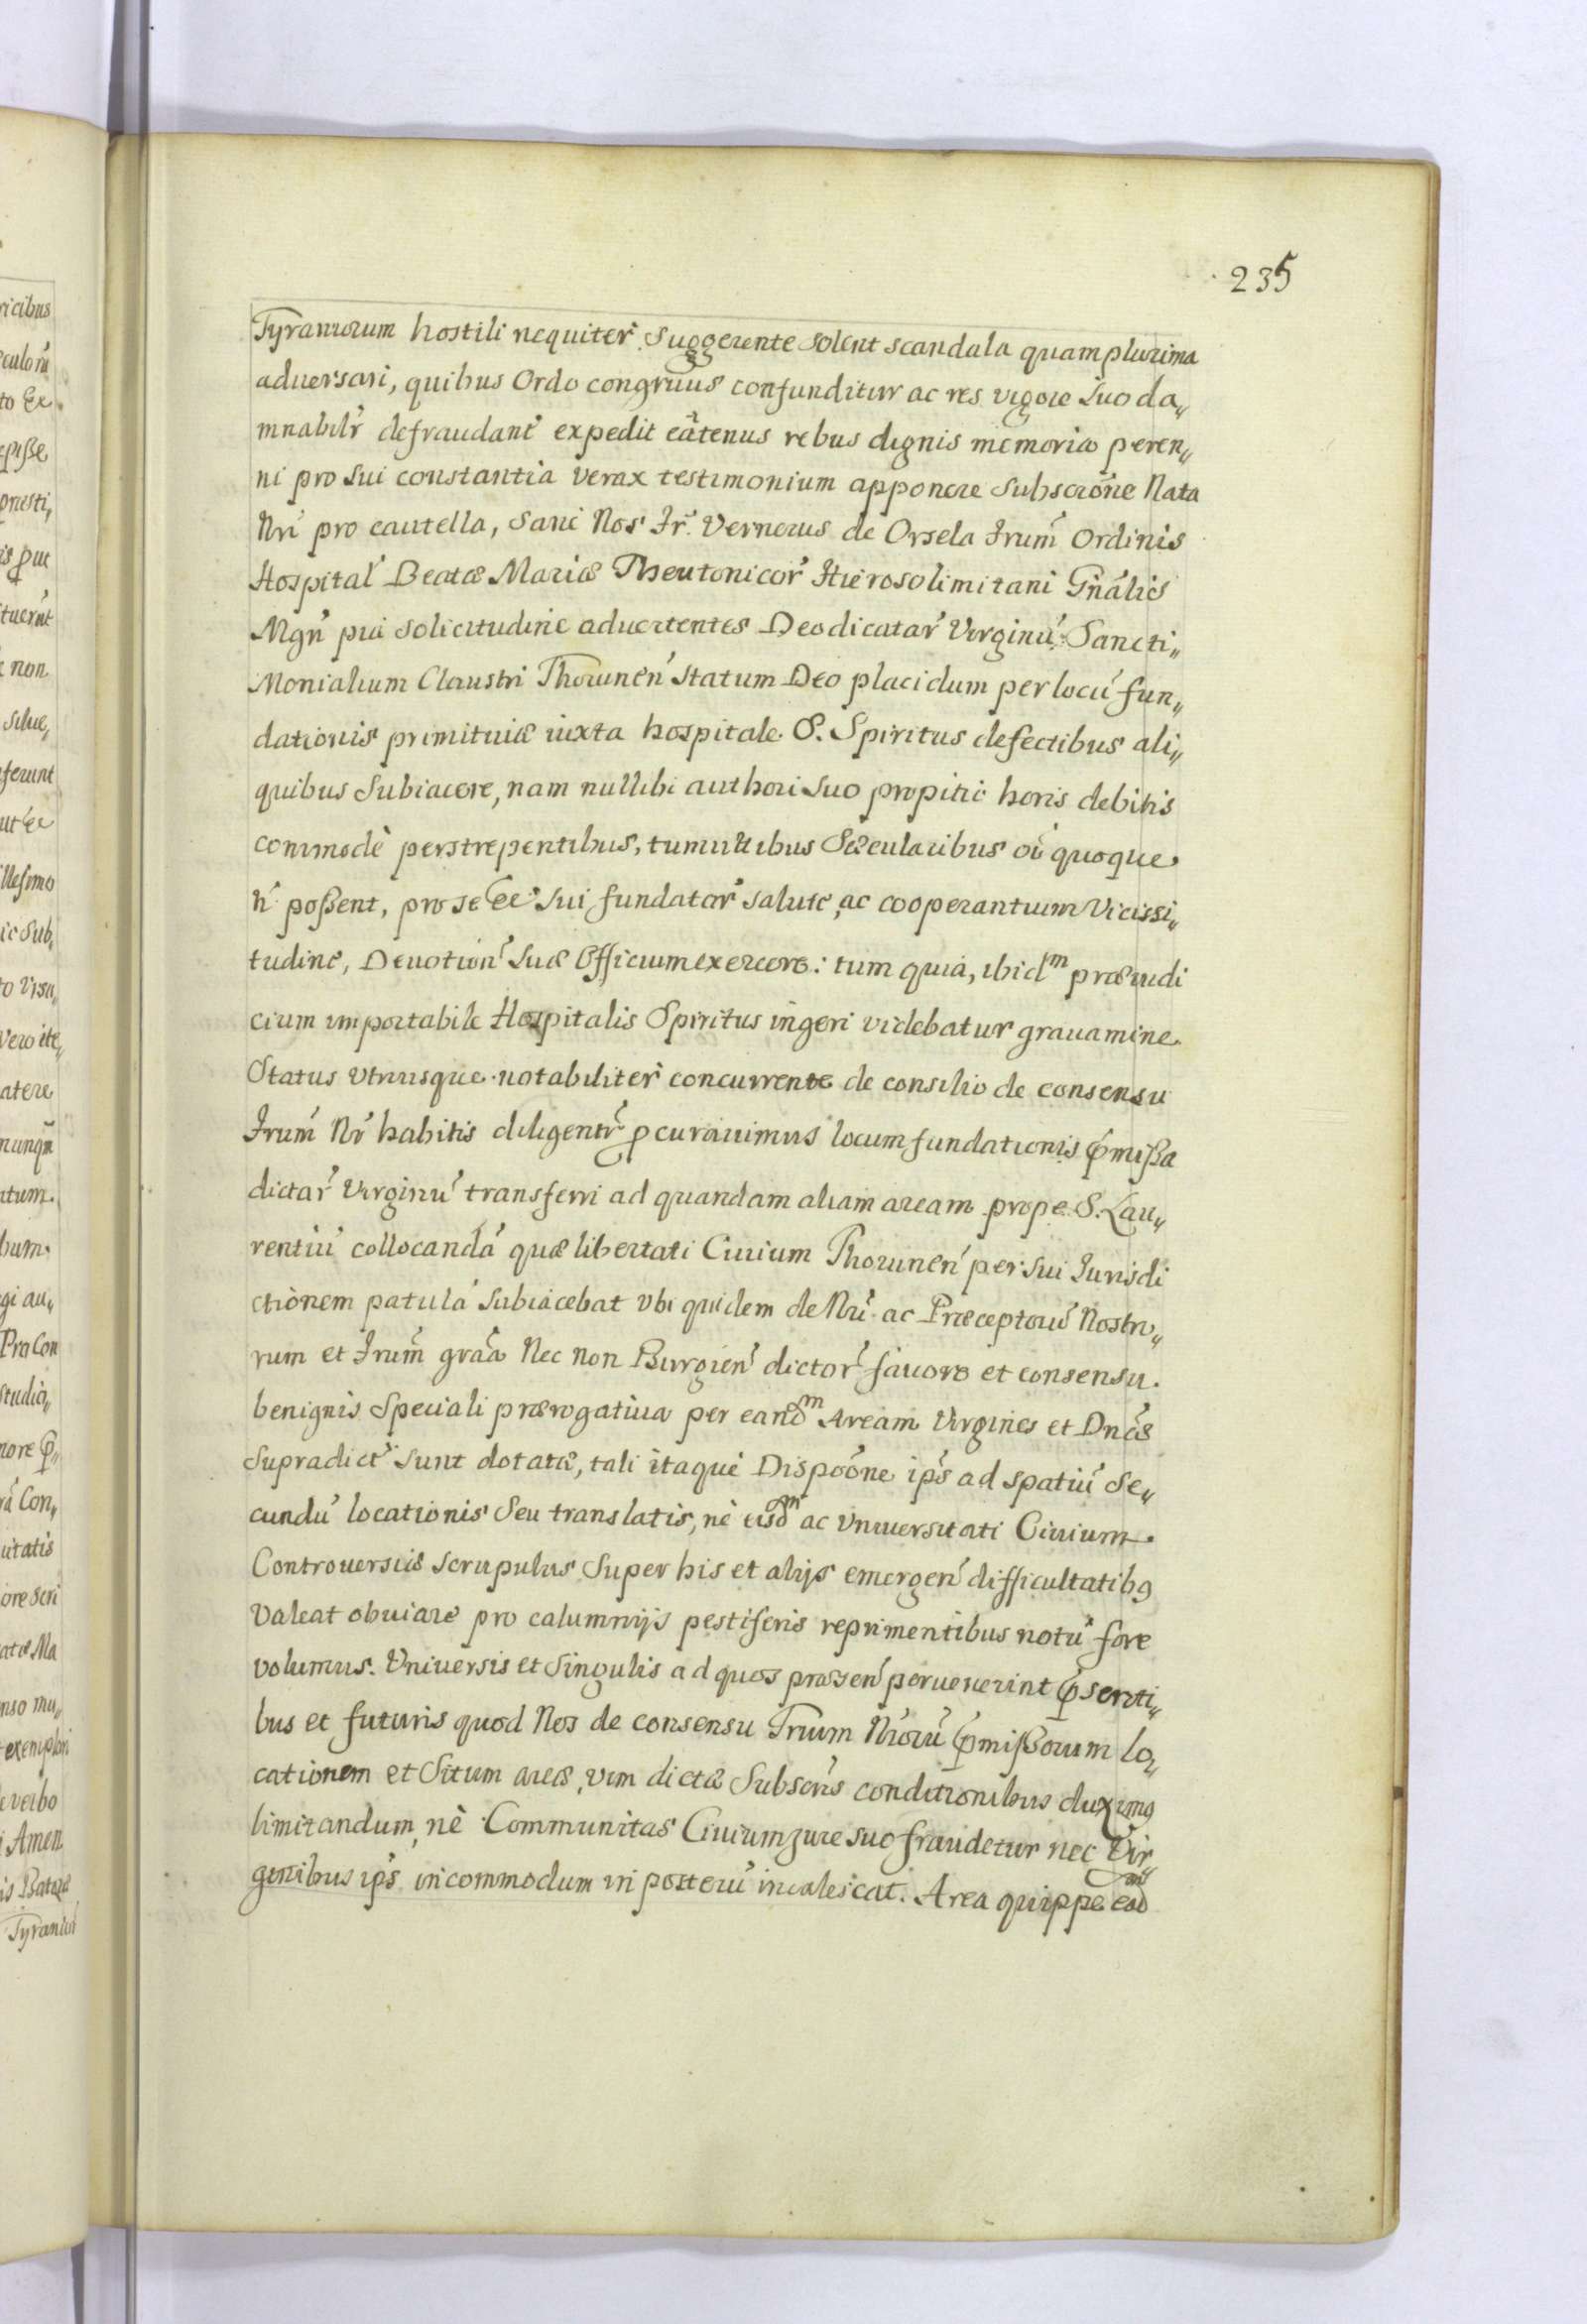 235
Tyrannorum hostili nequiter Suggerente solent scandala quamplurima
aduersari, quibus Ordo congruus confunditur ac res vigore suo da„
mnabilr̃ defraudant̃ expedit eátenus rebus dignis memoria peren„
ni pro sui constantia verax testimonium apponere subscrõne Nata
Nr̃i pro cautella, Sanè Nos Fr̃. Vernerus de Orsela Frum̃ Ordinis
Hospital̃ Beatæ Mariæ Theutonicor̃ Hierosolimitani Gñalis
Mgr̃ pia solicitudine aduertentes Deodicatar̃ Virginũ Sancti„
Monialium Claustri Thorunen̉ statum Deo placidum per locũ fun„
dationis primitiuæ iuxta hospitale S. Spiritus defectibus ali„
quibus subiacere, nam nullibi authori suo propitiè horis debitis
commodè perstrepentibus, tumultibus Sæcularibus
ñ poßent, pro se et sui fundator̃ salute, ac cooperantium Vicissi„
tudine, Deuotion̉ suæ Officium exercere: tum quia, ibidm præiudi
cium importabile Hospitalis Spiritus ingeri videbatur grauamine
Status vtriusque notabiliter concurrente de consilio de consensu
Frum̃ Nr̃ habitis diligentr̃ ꝓcurauimus locum fundationis p̃mißa
dictar̃ Virginũ transferri ad quandam aliam aream prope S. Lau„
rentiũ collocandã quæ libertati Ciuium Thorunen̉ per sui Jurisdi
ctionem patulã subiacebat vbi quidem de Nr̃ũ ac Præceptorũ Nostro„
rum et Frum̃ grãa Nec non Burgien̉ dictor̃ fauore et consensu
benignis Speciali prærogatiua per eandm Aream Virgines et Dnæ̃
supradict̃ sunt dotatæ, tali itaque Dispoõne ip̃s ad spatiũ se„
cundũ locationis seu translatis, nè eisdm ac Vniuersitati Ciuium
Controuersiis scrupulus super his et alijs emergen̉ difficultatibꝰ
Valeat obuiare pro calumnijs pestiferis reprimentibus notũ fore
volumus. Vniuersis et singulis ad quos præsen̉ peruenerint p̃senti„
bus et futuris quod Nos de consensu Frum Nr̃orũ p̃mißorum lo„
cationem et Situm areæ, dictæ Subscr̃is conditionibus duximꝰ
limitandum, nè Communitas Ciuium jure suo fraudetur nec Vir„
ginibus ip̃s incommodum in posterũ incalescat. Area quippe eadm